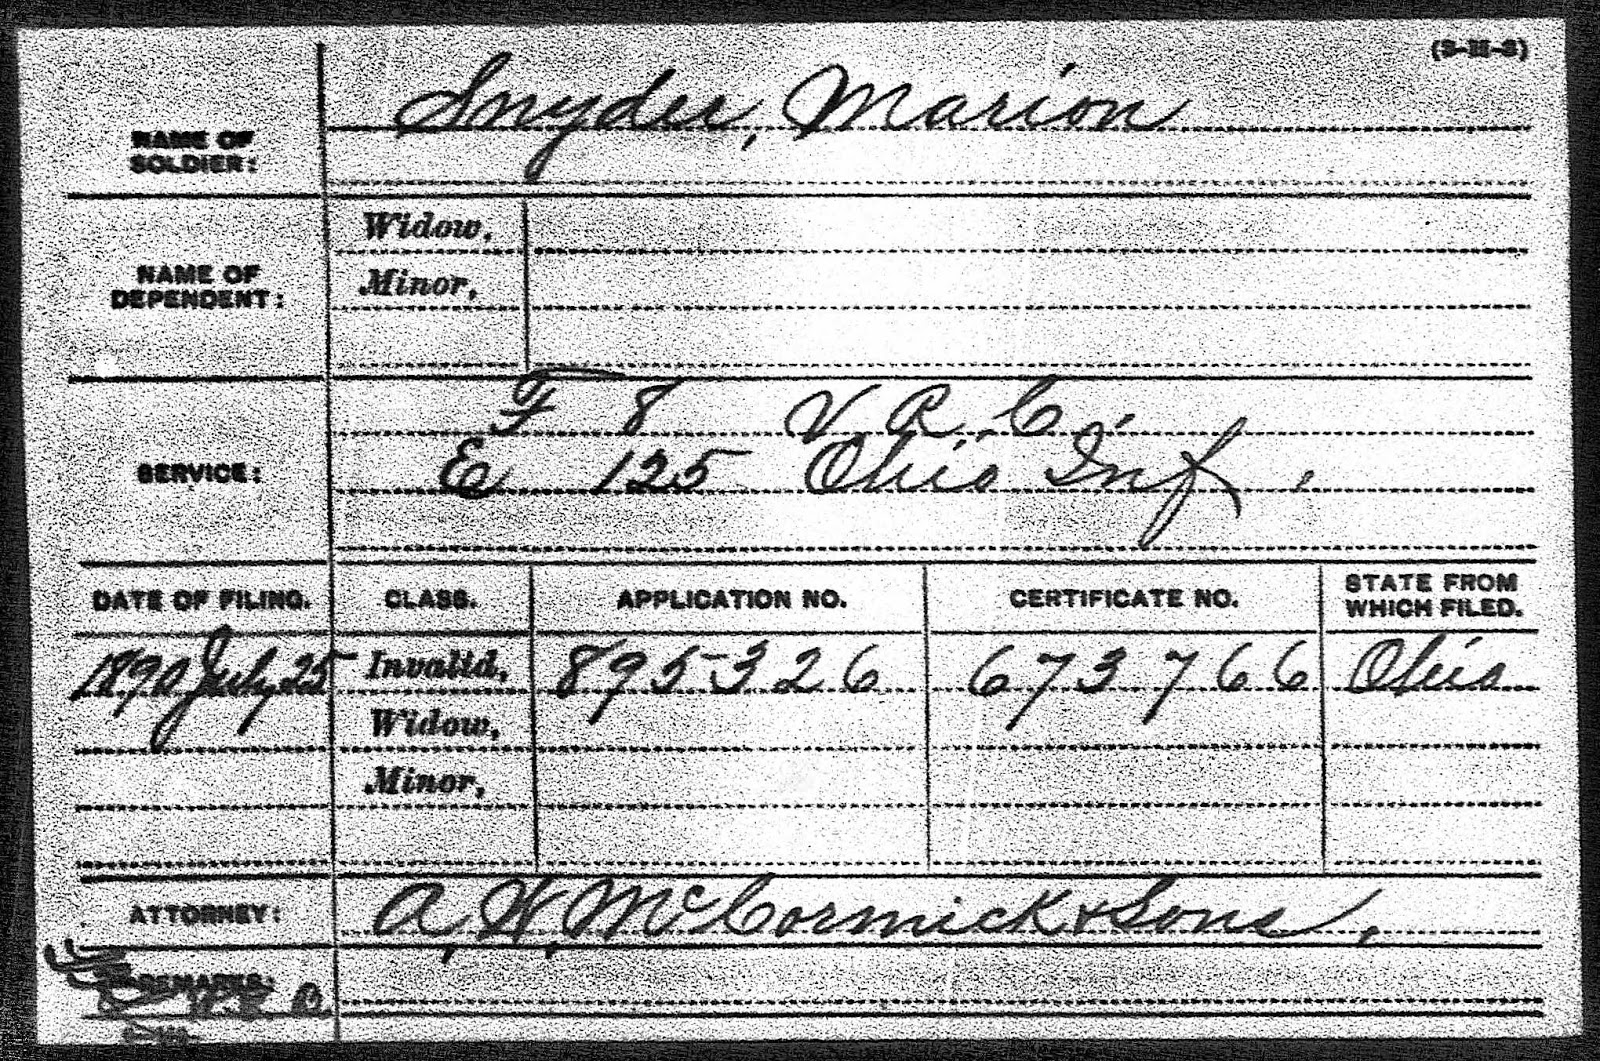 Snyder, Marion
NAME OF
SOLDIER:
NAME OF
DEPENDENT:
Widow,
Minor,
SERVICE:
F 8 V. R. C.
E 125 Ohio Inf.
DATE OF FILING. CLASS. APPLICATION NO. CERTIFICATE NO. STATE FROM
WHICH FILED.
1890 July 25 Invalid, 895326 673766 Ohio
Widow,
Minor,
ATTORNEY: A. W. McCormick & Sons.
REMARKS: